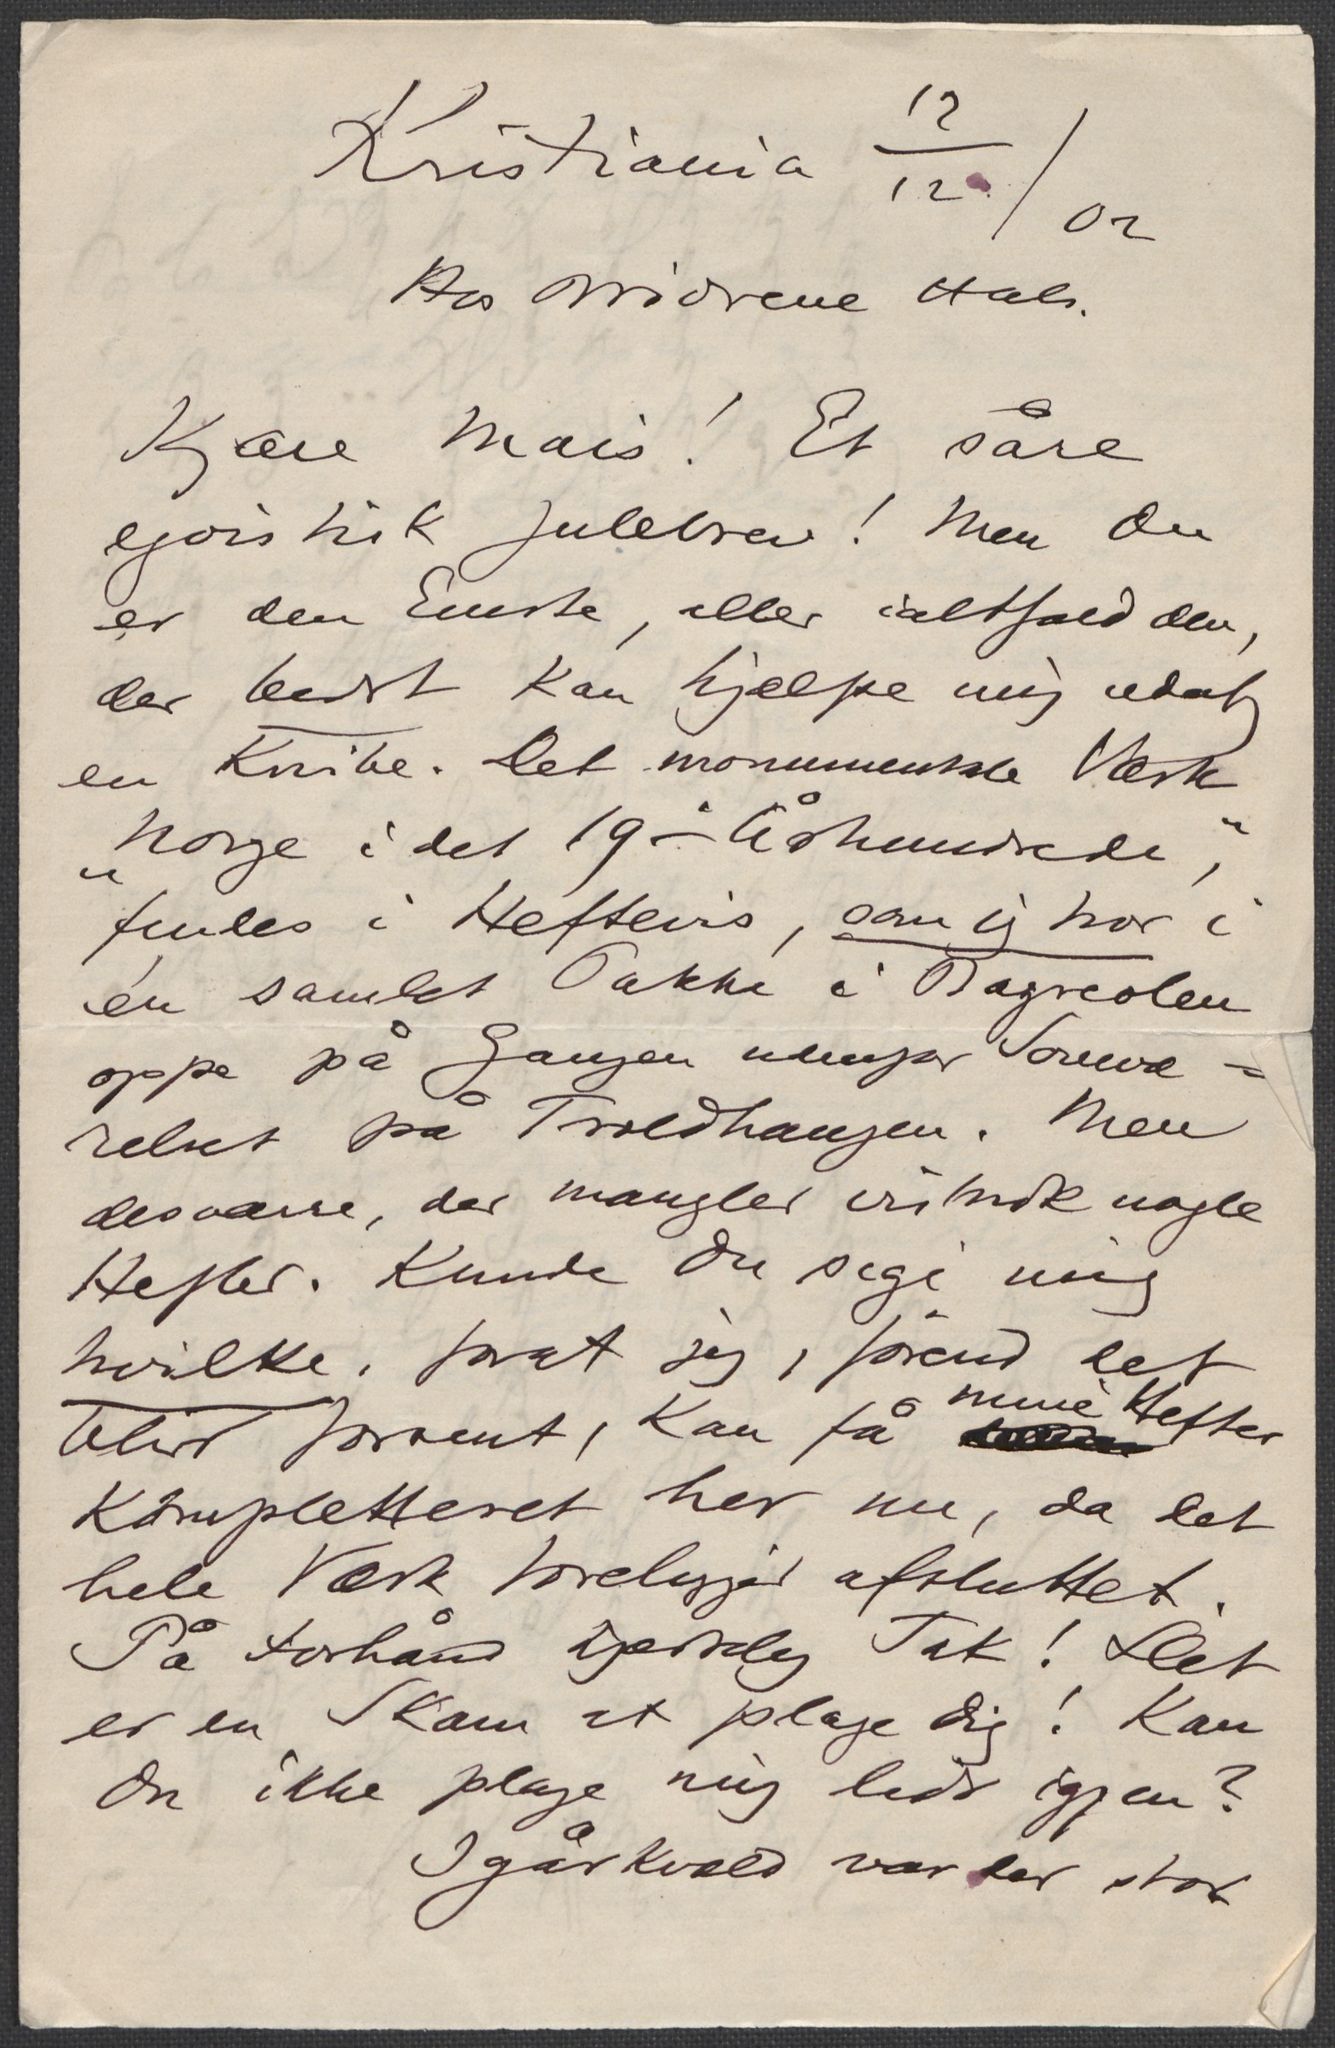 Kristiania 12/12/02
Hos Brödrene Hals.
Kjære Mais! Et såre
egoistisk Julebrev! Men Du
er den Eneste, eller ialtfald den,
der bedst kan hjælpe mig udaf
en Knibe. Det monumentale Værk
„Norge i det 19– Århundrede",
findes i Heftevis, som jeg har i
én samlet Pakke i Bagreolen
oppe på Gangen udenfor Soveværelset
på Troldhaugen. Men
desværre, der mangler vistnok nogle
Hefter. Kunde Du sige mig
hvilke, forat jeg, förend det
blir forsent, kan få mine Hefter
kompletteret her nu, da det
hele Værk foreligger afsluttet.
På Forhånd hjertelig Tak! Det
er en Skam at plage Dig! Kan
Du ikke plage mig lidt igjen?
Igårkvæld var der stor